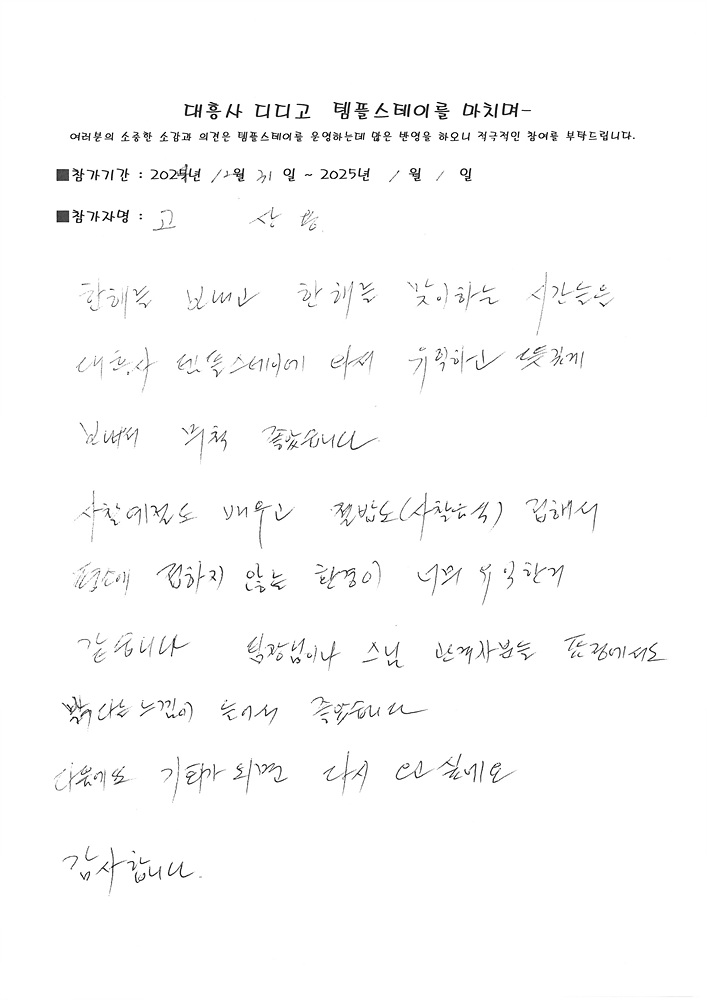 대흥사 디디고 템플스테이를 마치며-
여러분의 소중한 소감과 의견은 템플스테이를 운영하는데 많은 반영을 하오니 적극적인 참여를 부탁드립니다.
■참가기간 : 2024년 12월 31 일 ~ 2025년 1 월 1 일
■참가자명 : 고 산
한해를 보내고 한해를 맞이하는 시간들을
대흥사 템플스테이에 와서 유익하고 뜻깊게
보내서 무척 좋았습니다
사찰예절도 배우고 절밥도(사찰음식) 접해서
평소에 접하지 않는 환경이 너무 유익한거
같습니다 팀장님이나 스님 관계자분들 표정에서도
밝다는 느낌이 들어서 좋았습니다
다음에또 기회가 되면 다시 오고 싶네요
감사합니다.